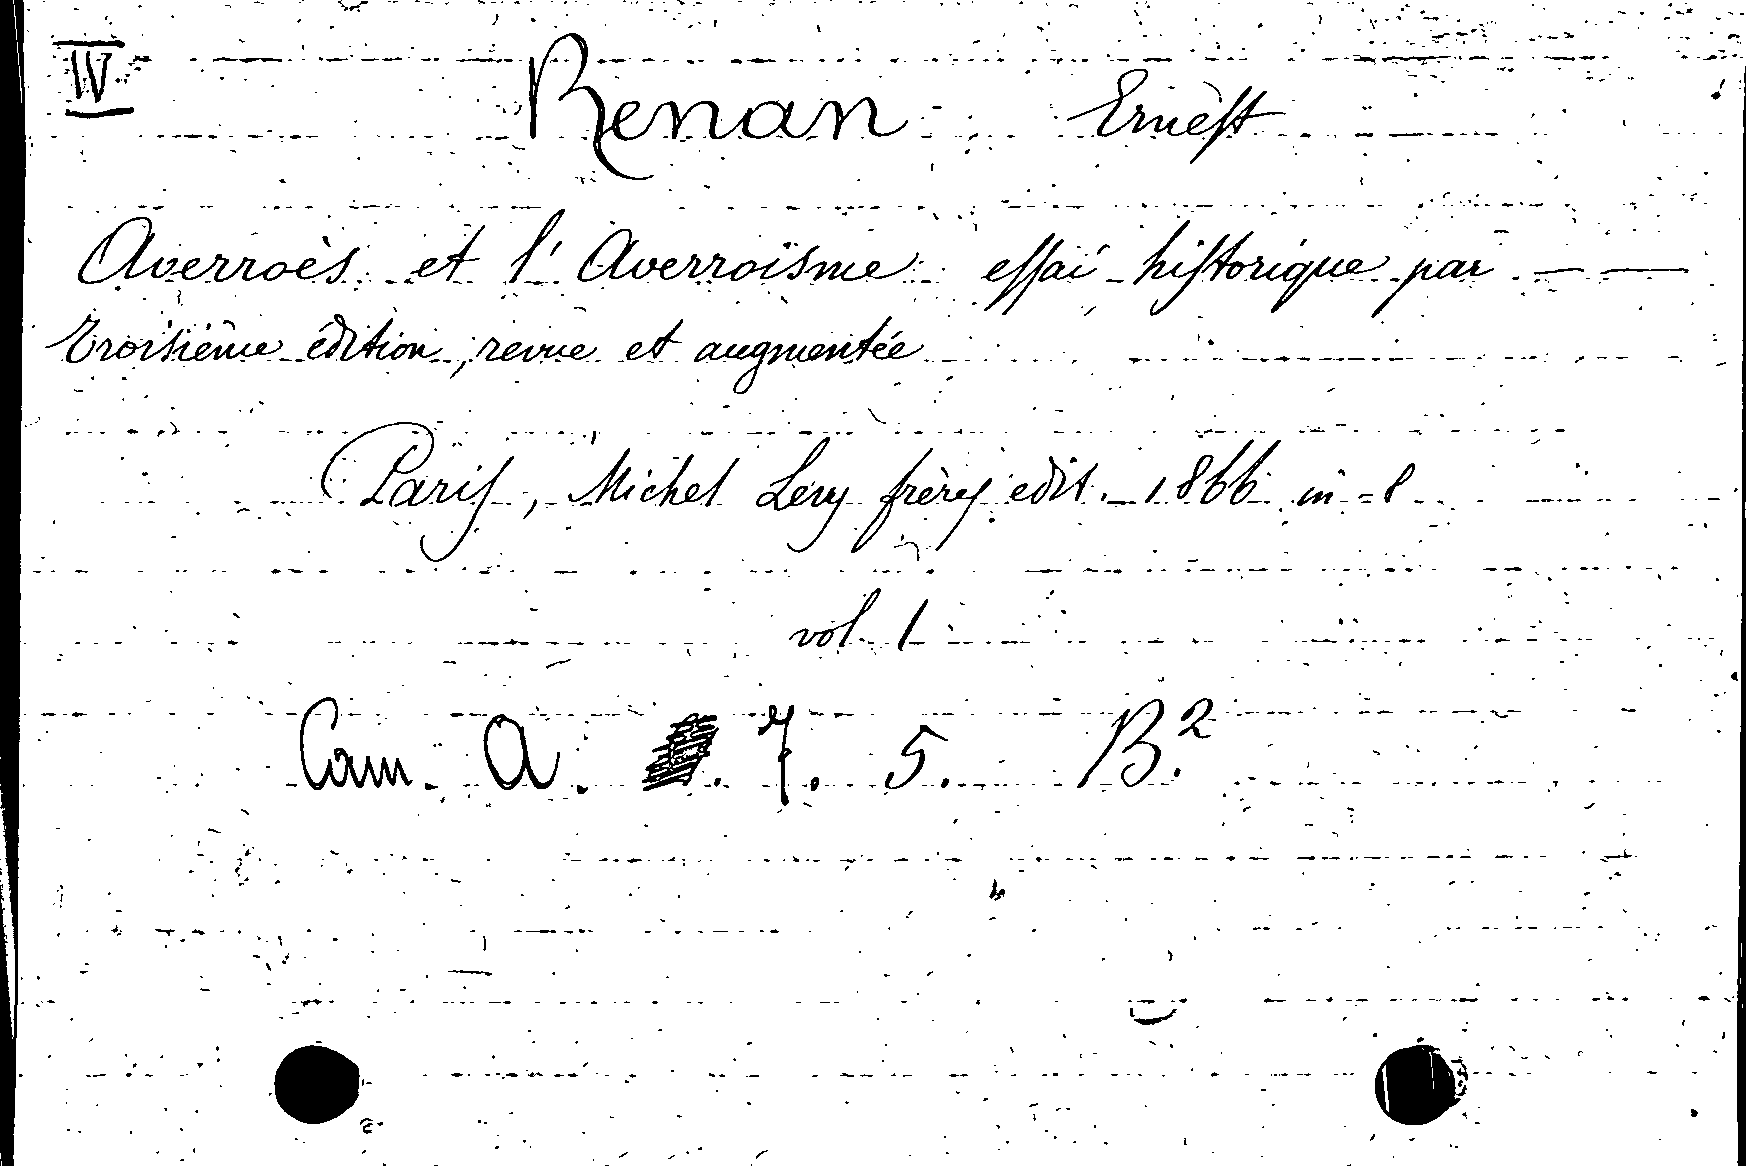 IV
Renan Ernest
Averroès et l'Averroïsme essai historique par — —
troisième édition, revue et augmentée
Paris, Michel Lévy frères edit. 1866 in-8
vol. 1
Cam. A. 7. 5. B.2